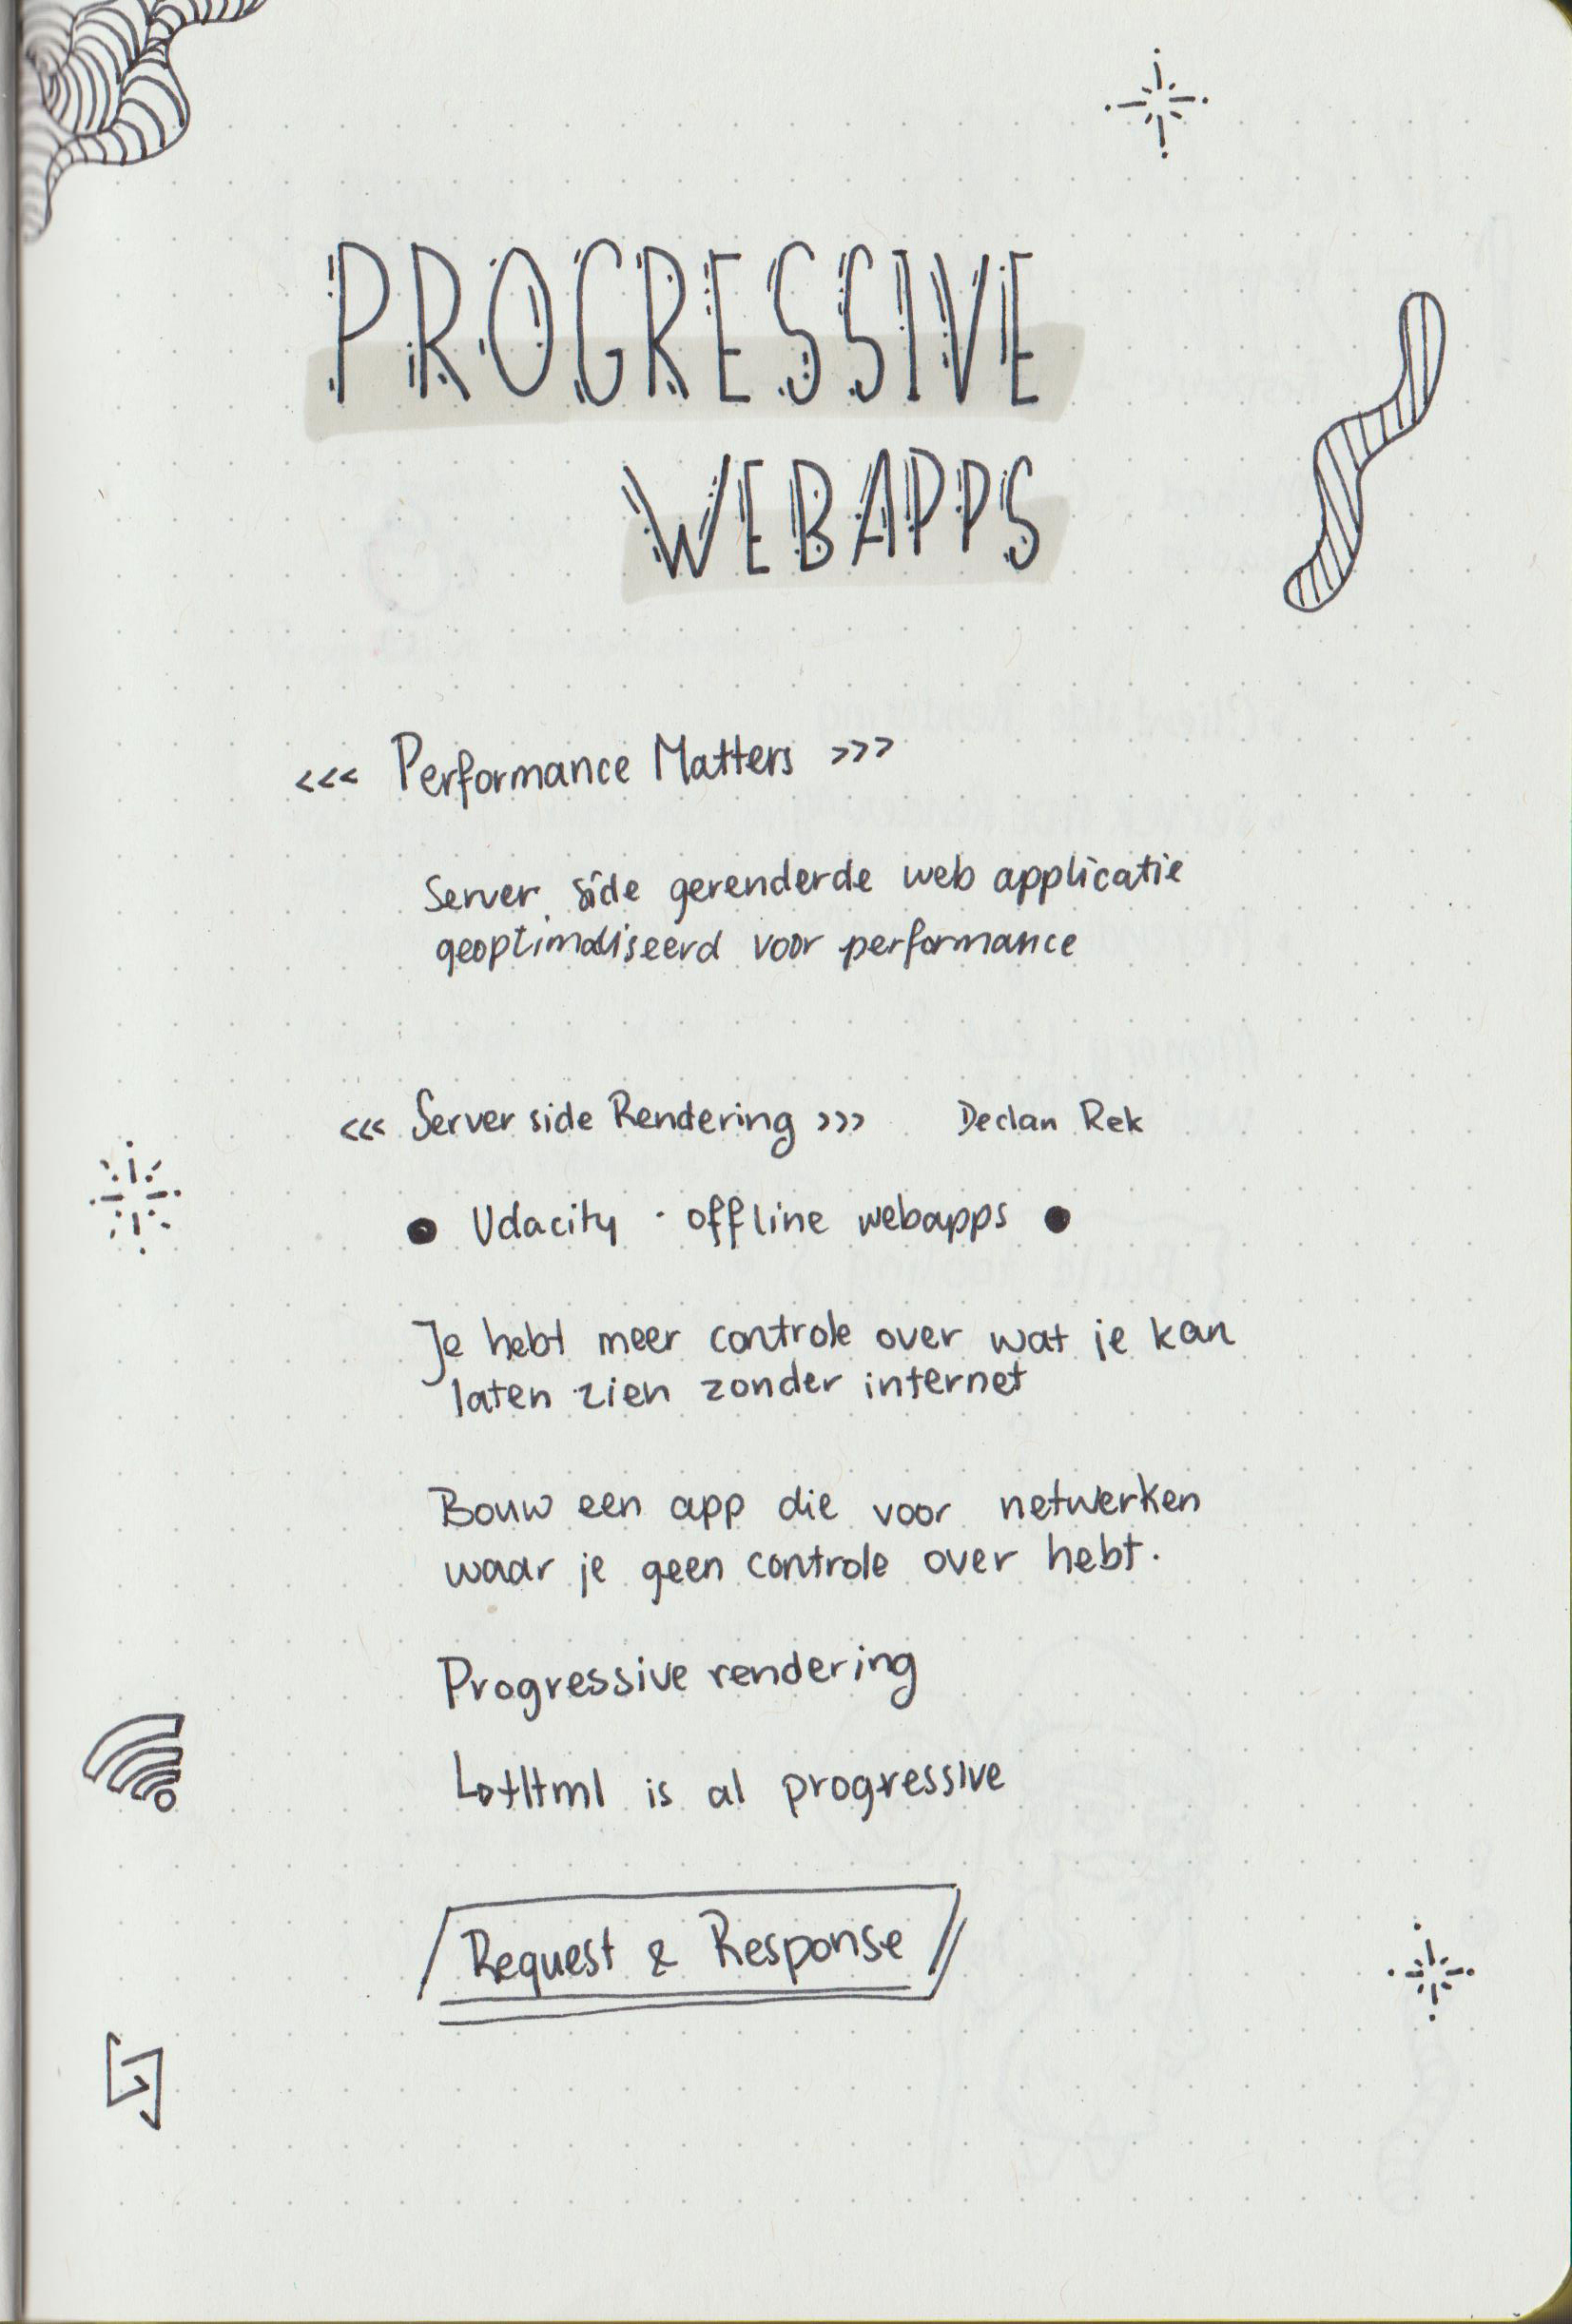 PROGRESSIVE
WEBAPPS
<<< Performance Matters >>>
Server side gerenderde web applicatie
geoptimaliseerd voor performance
<<< Server side Rendering >>> Declan Rek
• Udacity · offline webapps •
Je hebt meer controle over wat je kan
laten zien zonder internet
Bouw een app die voor netwerken
waar je geen controle over hebt.
Progressive rendering
↳ Html is al progressive
Request & Response